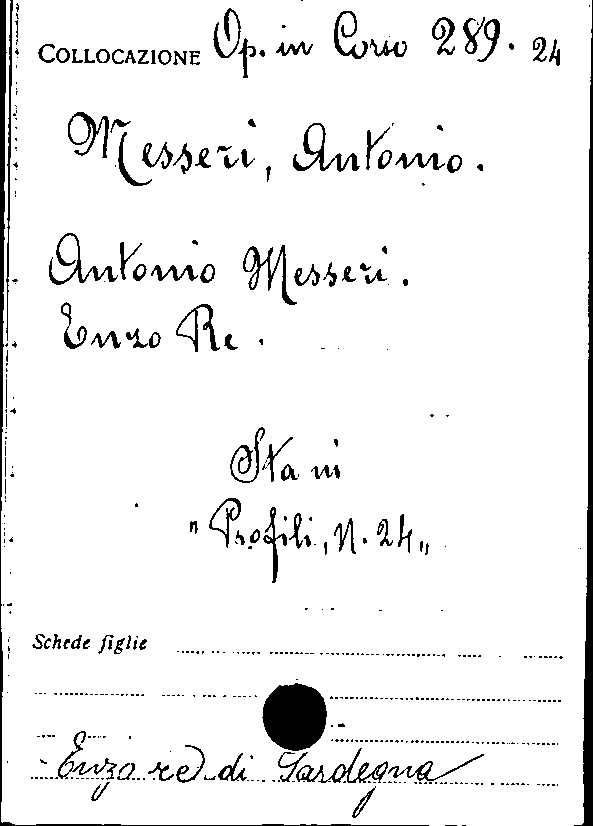 COLLOCAZIONE Op. in Corso 289. 24
Messeri, Antonio.
Antonio Messeri.
Enzo Re.
Sta in
"Profili, N. 24"
Schede figlie
Enzo re di Sardegna